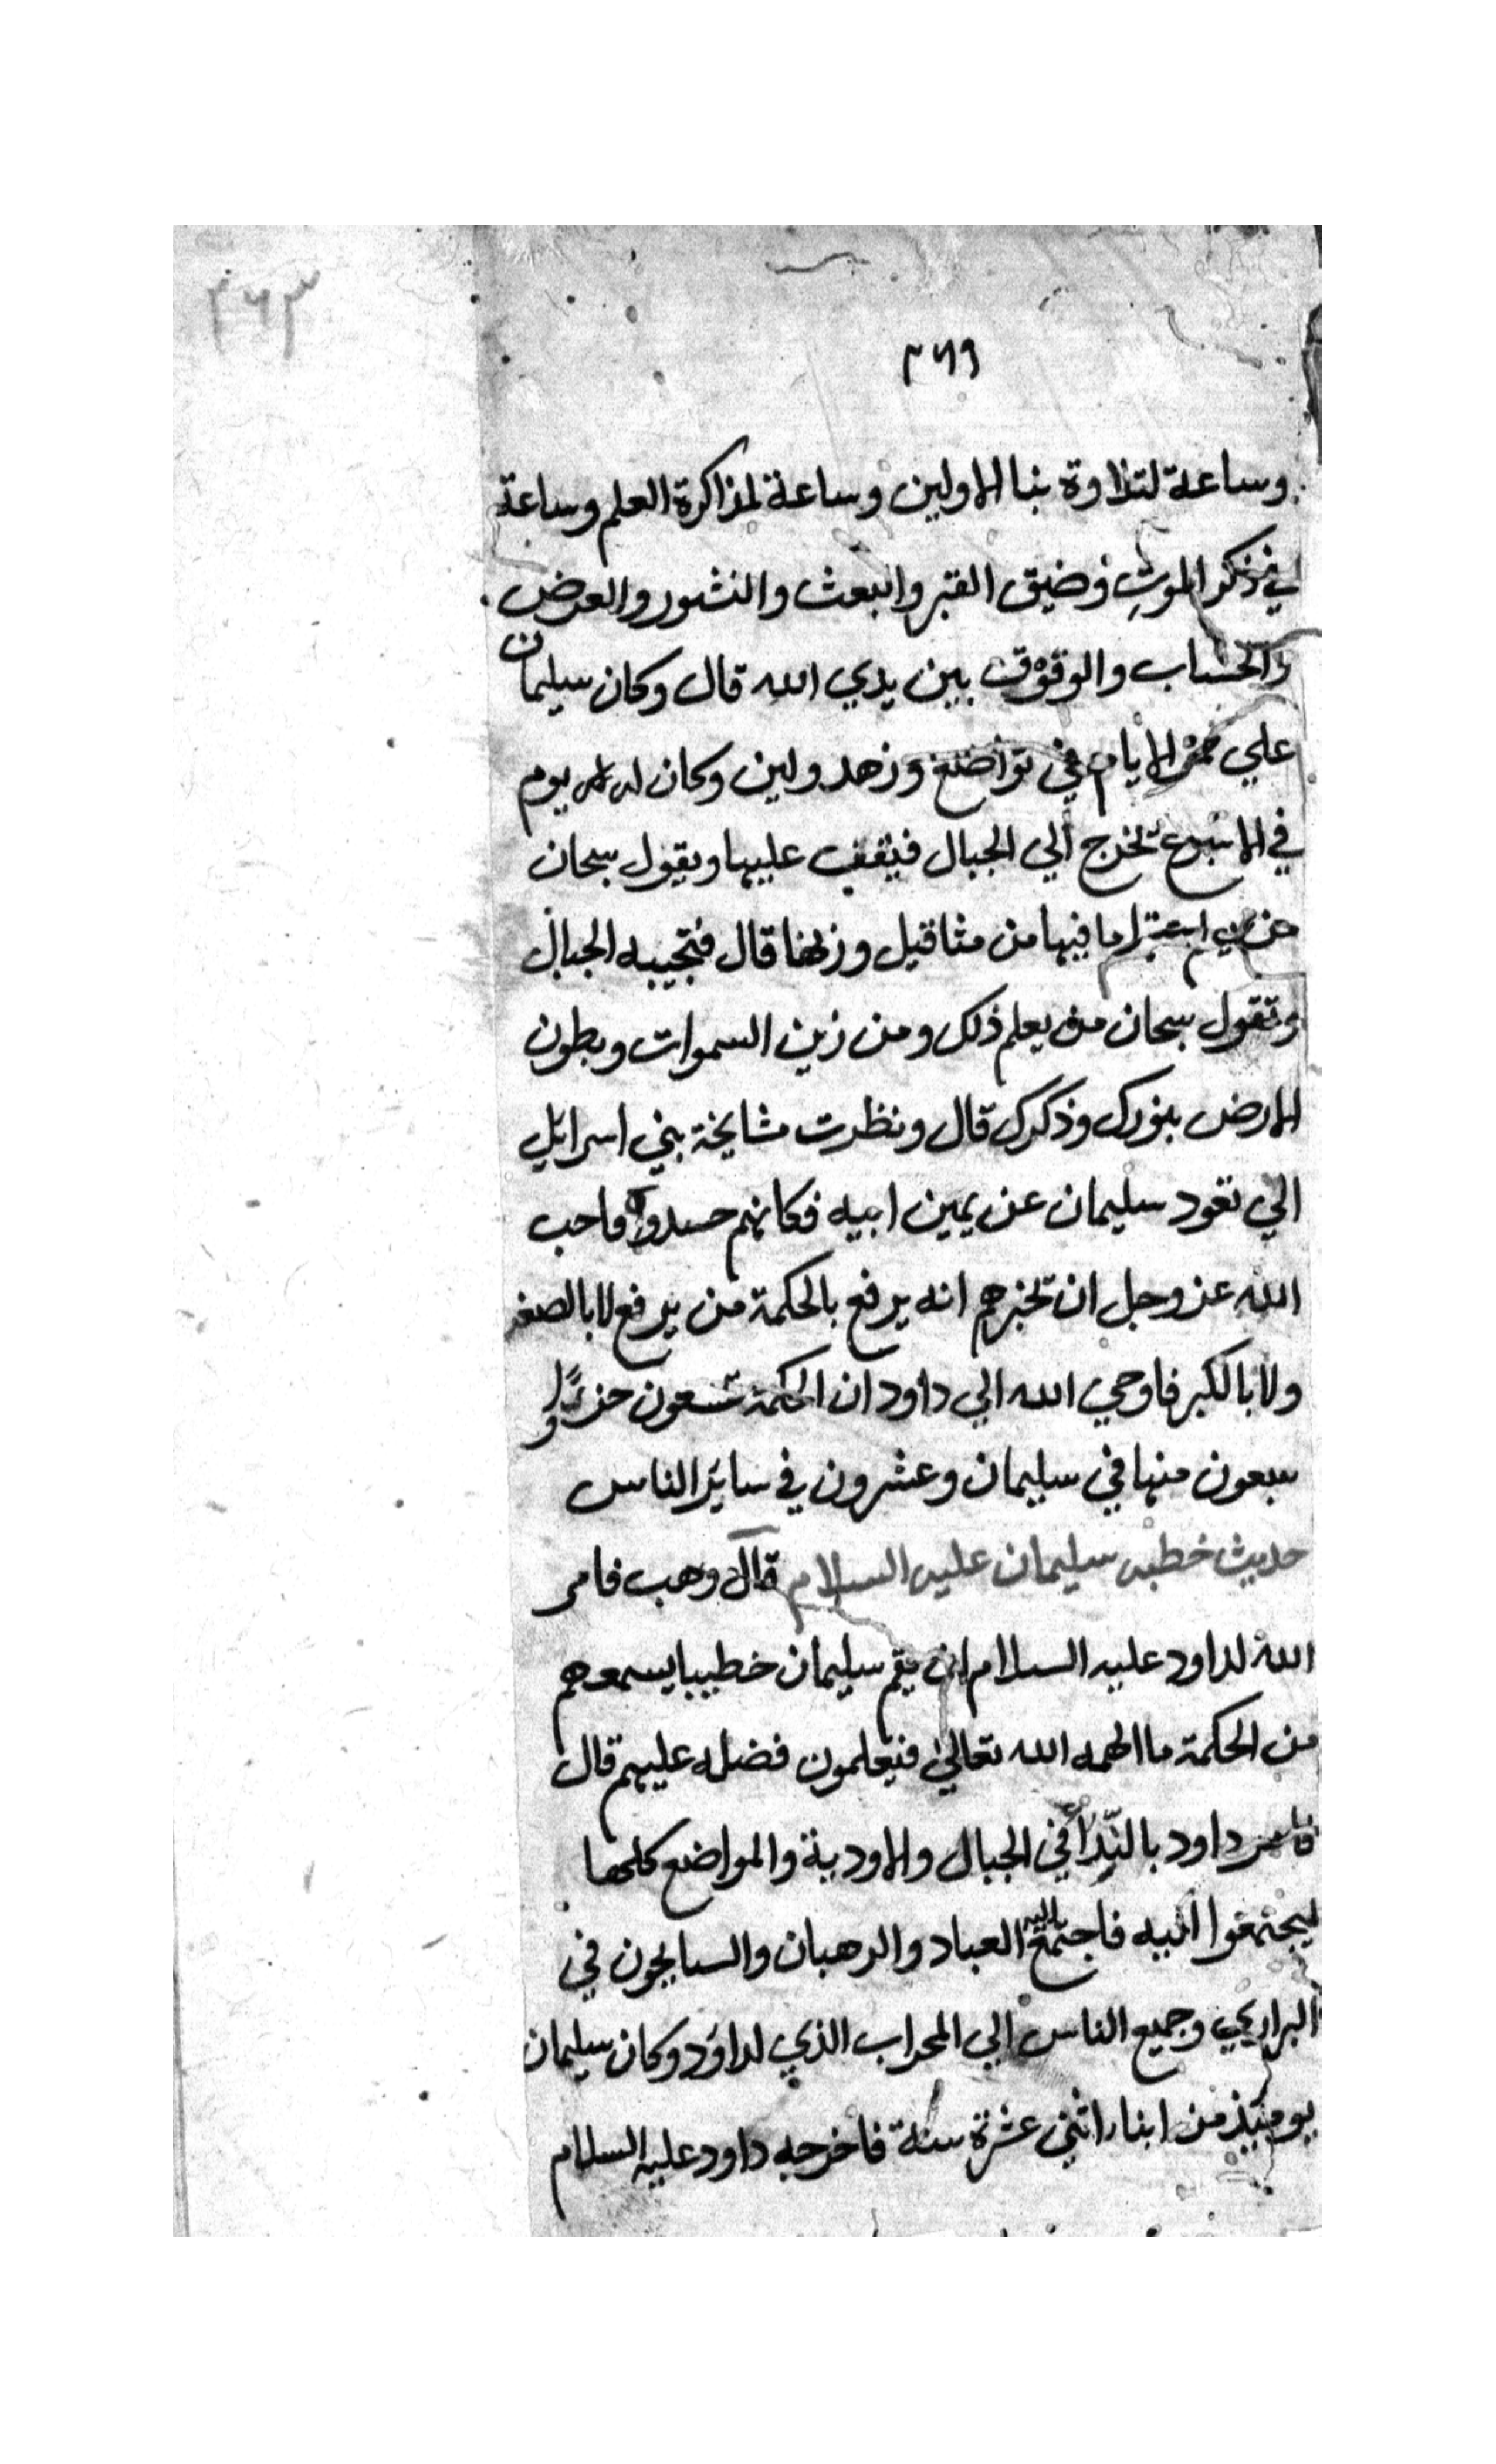 ٣٦٣
٣٦٩
وساعة لتلاوة نبا الاولين وساعة لمذاكرة العلم وساعة
في ذكر الموت وضيق القبر والبعث والنشور والعرض
والحساب والوقوف بين يدي الله قال وكان سليمان
علي ممر الايام في تواضع وزهد ولين وكان له يوم
في الاسبوع يخرج الي الجبال فيقف عليها ويقول سبحان
ما فيها من مثاقيل وزنها قال فتجيبه الجبال
وتقول سبحان من يعلم ذلك ومن زين السموات وبطون
الارض بنورك وذكرك قال ونظرت مشايخة بني اسرايل
الي نعود سليمان عن يمين ابيه فكانهم حسدوه فاحب
الله عز وجل ان يخبرهم انه يرفع بالحكمة من يرفع لا بالصغر
ولا بالكبر فاوحي الله الي داود ان الحكمة تسعون جزءًا و
سبعون منها في سليمان وعشرون في ساير الناس
حديث خطبه سليمان عليه السلام قال وهب فامر
الله لداود عليه السلام ان يقم سليمان خطيبا يسمعهم
من الحكمة ما الهمه الله تعالي فيعلمون فضله عليهم قال
فامر داود بالنِّدا في الجبال والاودية والمواضع كلها
ليجتمعوا اليه فاجتمع اليه العباد والرهبان والسايحون في
البراري وجميع الناس الي المحراب الذي لداود وكان سليمان
يوميذ من ابناء اثني عشرة سنة فاخرجه داود عليه السلام